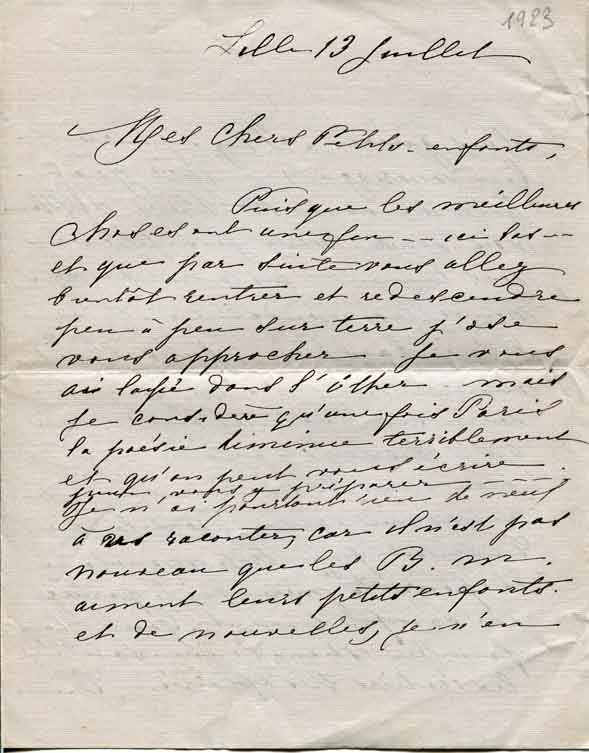 1923
Lille 13 Juillet
Mes Chers Petits-enfants,
Puisque les meilleures
choses ont une fin -- ici bas --
et que par suite vous allez
bientôt rentrer et redescendre
peu à peu sur terre j'ose
vous approcher. Je vous
ai laissé dans l'éther - mais
je considère qu'une fois Paris
la poésie diminue terriblement
et qu'on peut vous écrire
pour vous y préparer -----
Je n'ai pourtant rien de neuf
à vous raconter, car il n'est pas
nouveau que les B. m.
aiment leurs petits enfants.
et de nouvelles, je n'en